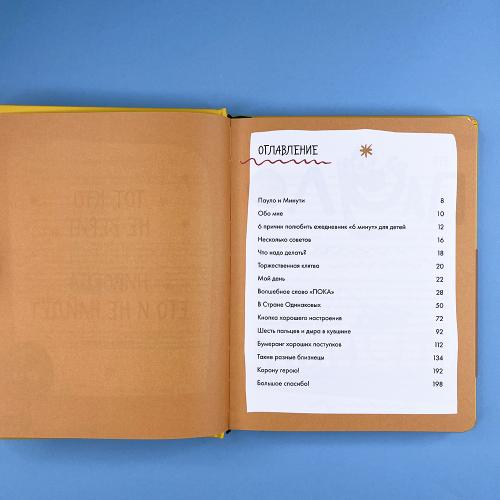 ОГЛАВЛЕНИЕ
Пауло и Минути 8
Обо мне 10
6 причин полюбить ежедневник «6 минут» для детей 12
Несколько советов 16
Что надо делать? 18
Торжественная клятва 20
Мой день 22
Волшебное слово «ПОКА» 28
В Стране Одинаковых 50
Кнопка хорошего настроения 72
Шесть пальцев и дыра в кувшине 92
Бумеранг хороших поступков 112
Такие разные близнецы 134
Корону герою! 192
Большое спасибо! 198